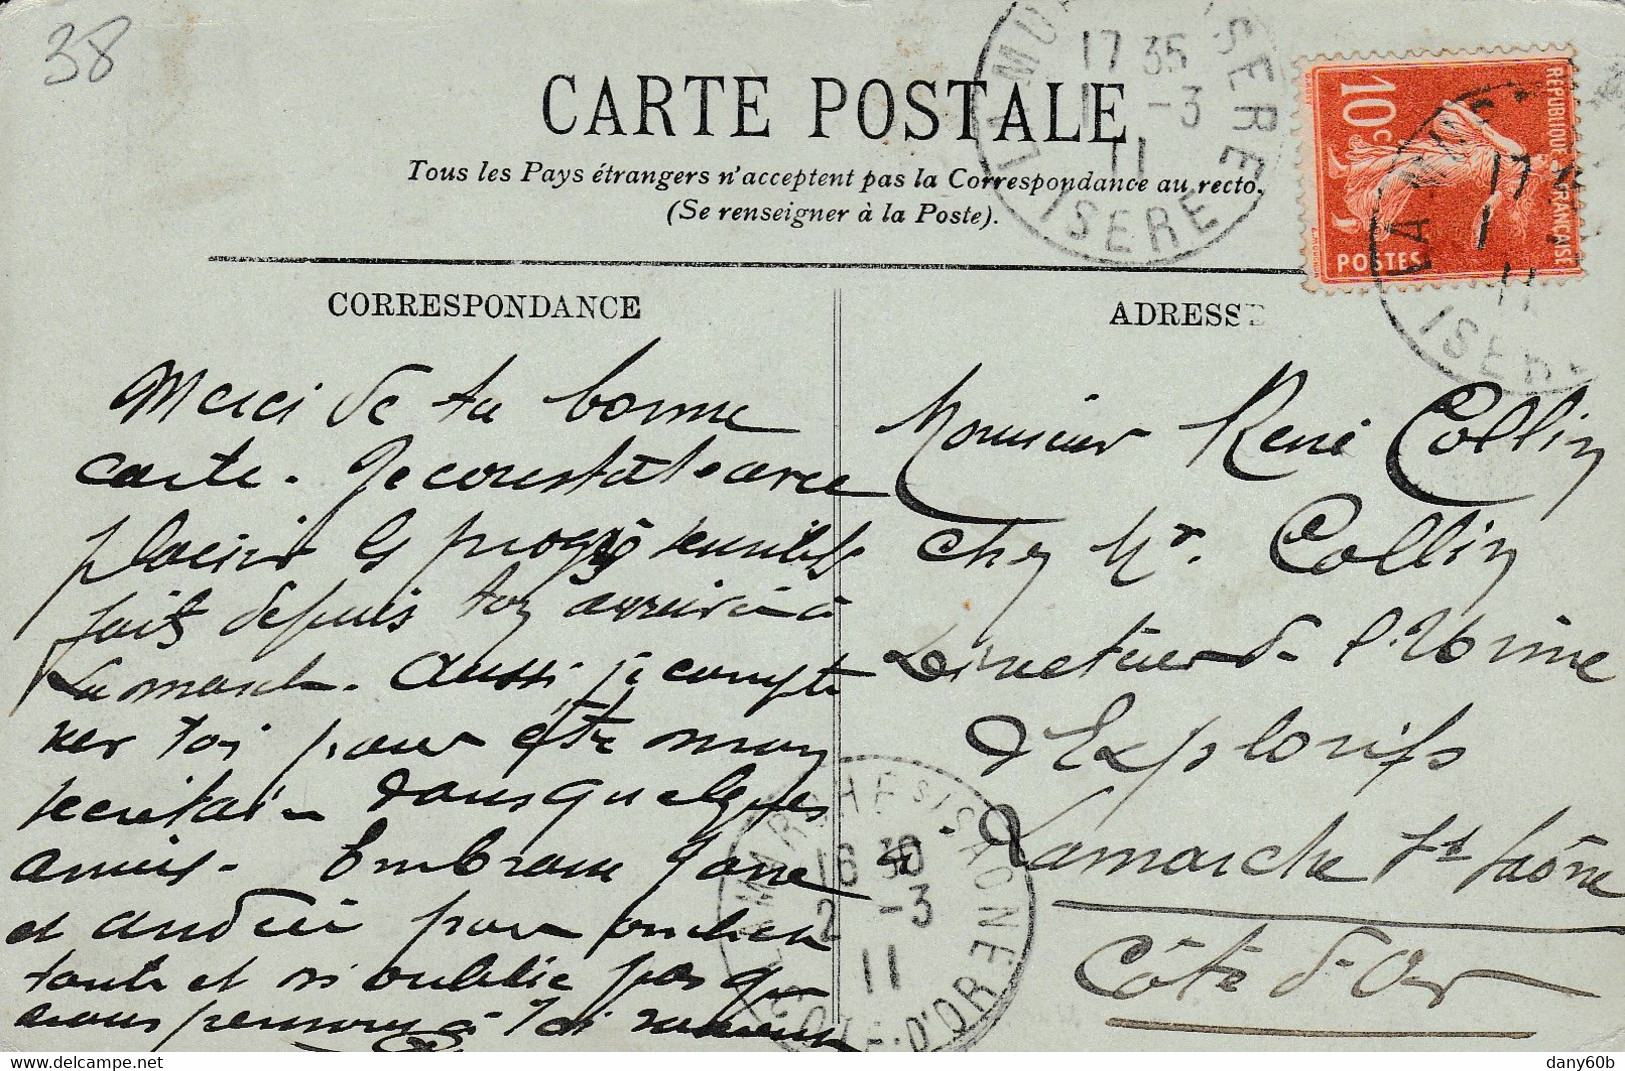 38
CARTE POSTALE
Tous les Pays étrangers n'acceptent pas la Correspondance au recto.
(Se renseigner à la Poste).
LA MURE ISERE
17 35
1 -3
11
ISERE
REPUBLIQUE FRANÇAISE
10c
POSTES
LA MURE
17
1
11
ISERE
CORRESPONDANCE
Merci de ta bonne
carte. Je constate avec
plaisir les progrès sensibles
faits depuis ton arrivée à
Lamarche. Aussi, je compte
sur toi pour être mon
secrétaire dans quelques
années. Embrasse Jane
et Andrée pour
tante et n'oublie pas que
nous pensons à toi souvent
ADRESSE
Monsieur René Collin
chez Mr. Collin
Directeur de l'Usine
d'Explosifs
Lamarche s/ Saône
Côte d'Or
LAMARCHE S/SAONE
16 30
2 -3
11
COTE-D'OR
dany60b